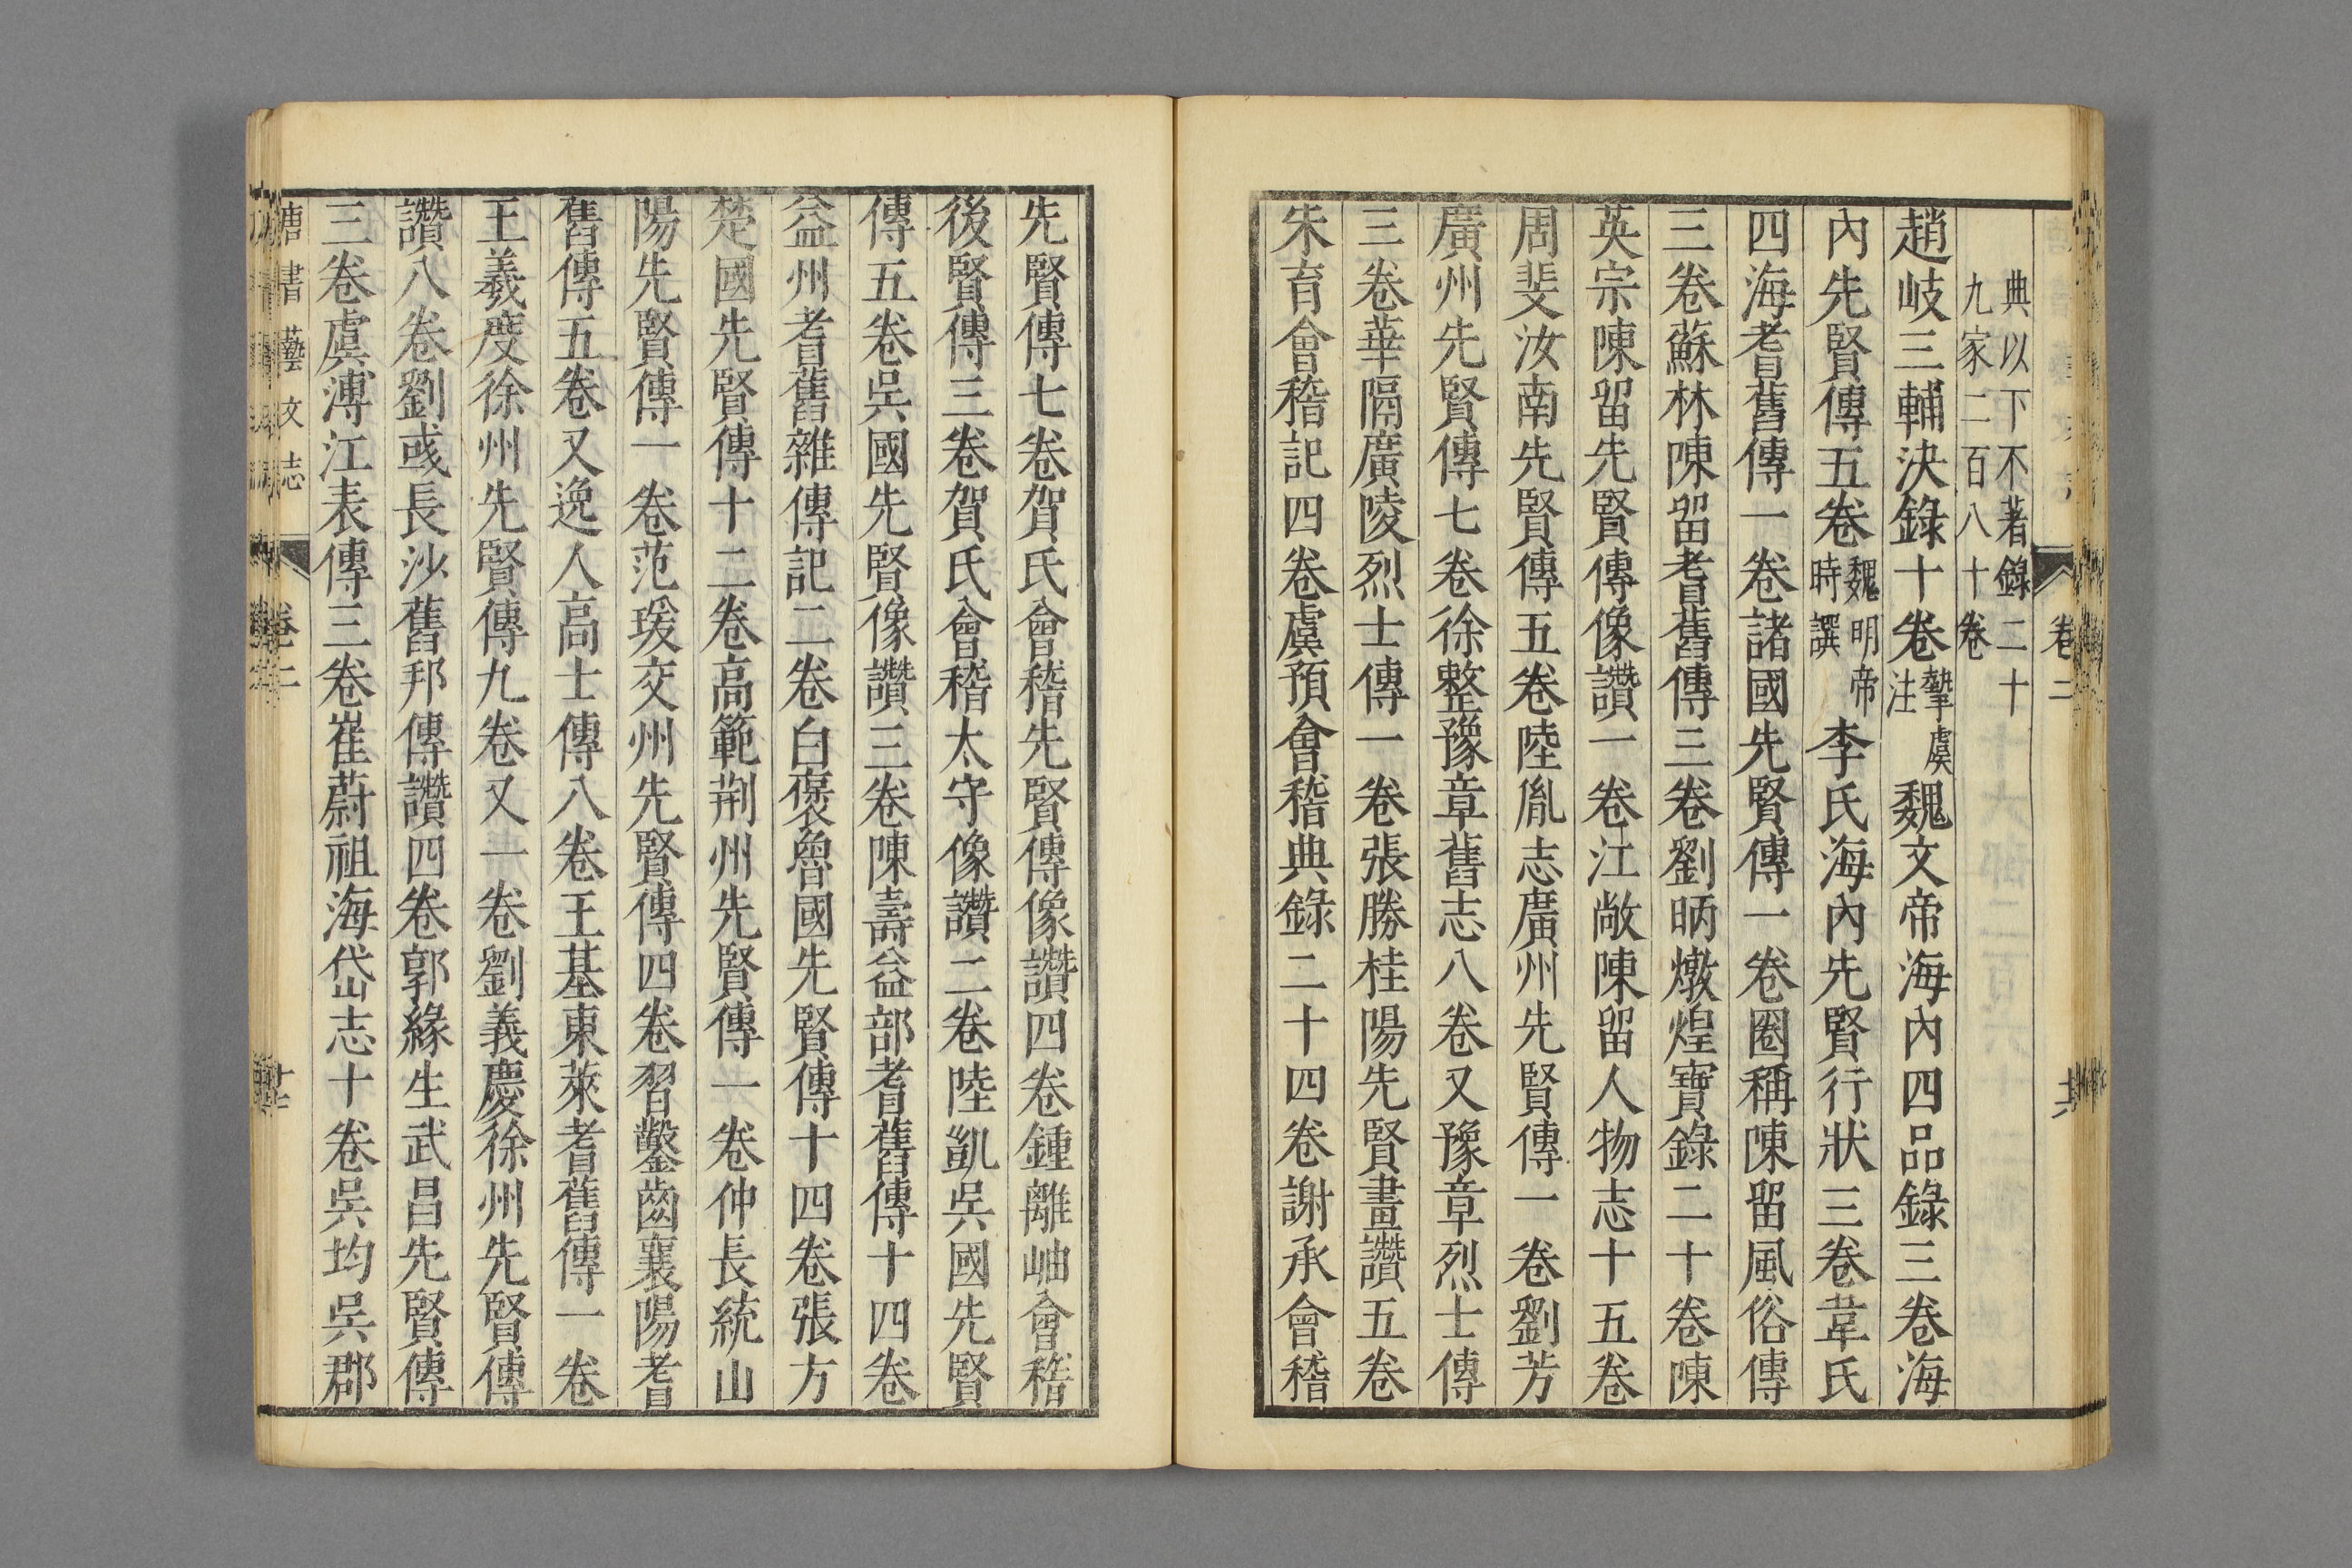 典以下不著錄二十
九家二百八十卷
趙岐三輔決錄十卷摯虞注魏文帝海內四品錄三卷海
內先賢傳五卷魏明帝時譔李氏海內先賢行狀三卷韋氏
四海耆舊傳一卷諸國先賢傳一卷圈稱陳留風俗傳
三卷蘇林陳留耆舊傳三卷劉昞燉煌寶錄二十卷陳
英宗陳留先賢傳像讚一卷江敞陳留人物志十五卷
周斐汝南先賢傳五卷陸胤志廣州先賢傳一卷劉芳
廣州先賢傳七卷徐整豫章舊志八卷又豫章烈士傳
三卷華隔廣陵烈士傳一卷張勝桂陽先賢畫讚五卷
朱育會稽記四卷虞預會稽典錄二十四卷謝承會稽
卷二
先賢傳七卷賀氏會稽先賢傳像讚四卷鍾離岫會稽
後賢傳三卷賀氏會稽太守像讚二卷陸凱吳國先賢
傳五卷吳國先賢像讚三卷陳壽益部耆舊傳十四卷
益州耆舊雜傳記二卷白褒魯國先賢傳十四卷張方
楚國先賢傳十二卷高範荆州先賢傳一卷仲長統山
陽先賢傳一卷范瑗交州先賢傳四卷習鑿齒襄陽耆
舊傳五卷又逸人高士傳八卷王基東萊耆舊傳一卷
王羲度徐州先賢傳九卷又一卷劉義慶徐州先賢傳
讚八卷劉彧長沙舊邦傳讚四卷郭緣生武昌先賢傳
三卷虞溥江表傳三卷崔蔚祖海岱志十卷吳均吳郡
唐書藝文志 卷二